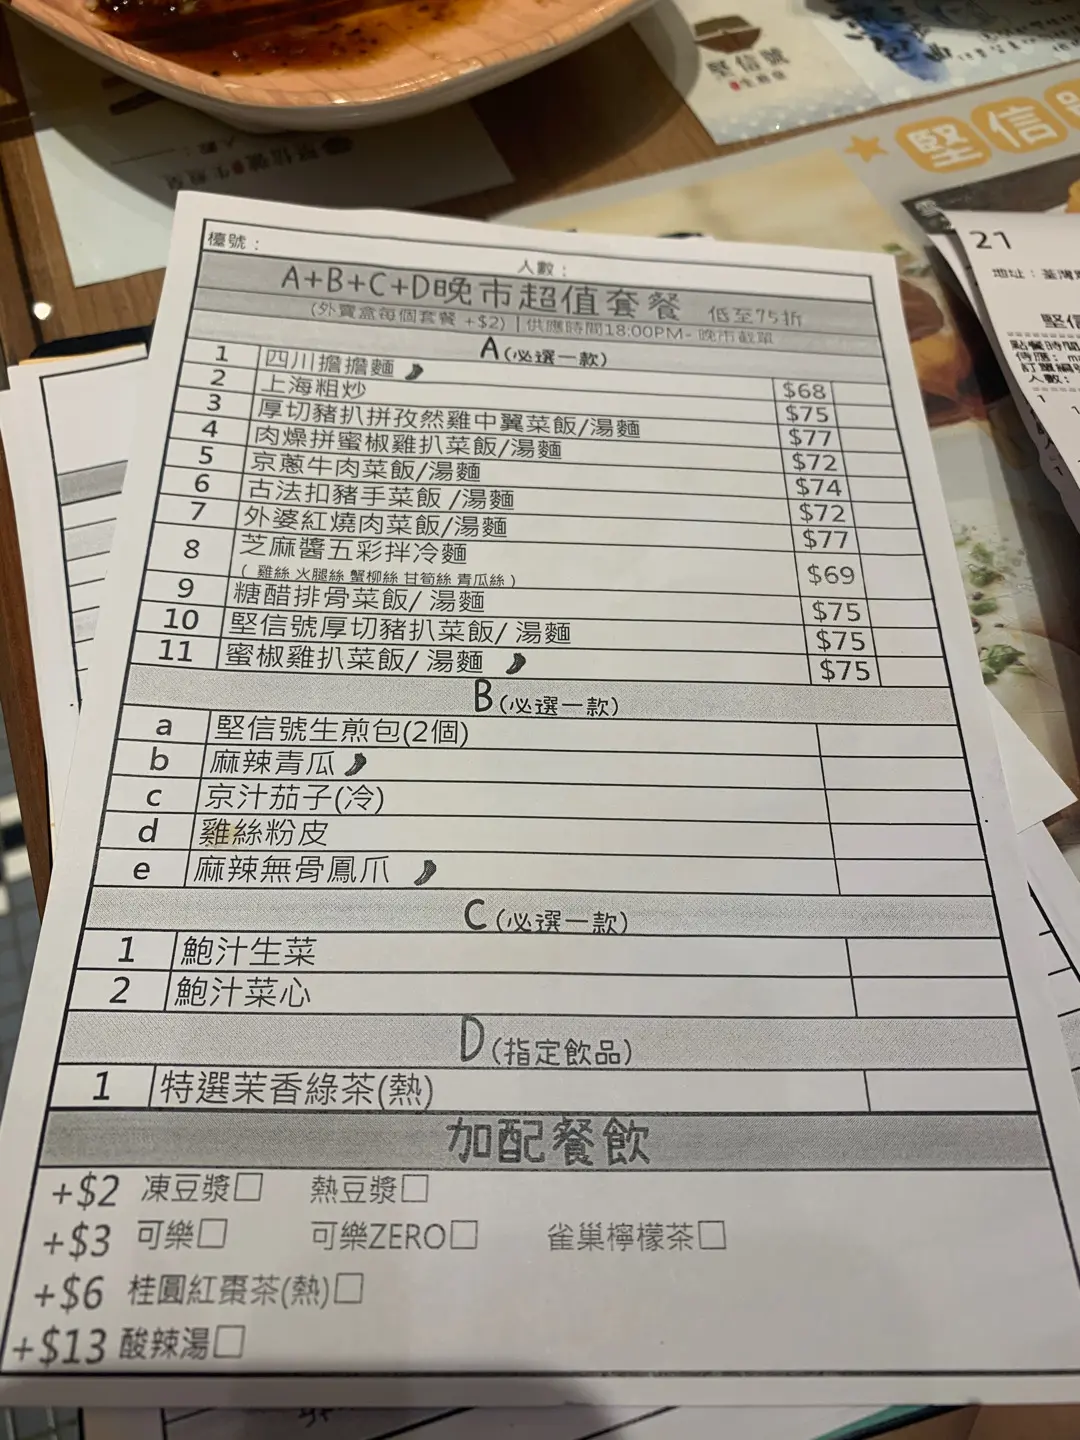 堅信號
生煎皇
堅信
21
地址：荃灣
堅信
點餐時間
人數：
檯號：
人數：
A+B+C+D晚市超值套餐 低至75折
(外賣盒每個套餐 +$2) | 供應時間18:00PM- 晚市截單
A(必選一款)
1 四川擔擔麵 $68
2 上海粗炒 $75
3 厚切豬扒拼孜然雞中翼菜飯/湯麵 $77
4 肉燥拼蜜椒雞扒菜飯/湯麵 $72
5 京蔥牛肉菜飯/湯麵 $74
6 古法扣豬手菜飯 /湯麵 $72
7 外婆紅燒肉菜飯/湯麵 $77
8 芝麻醬五彩拌冷麵 $69
( 雞絲 火腿絲 蟹柳絲 甘筍絲 青瓜絲 )
9 糖醋排骨菜飯/ 湯麵 $75
10 堅信號厚切豬扒菜飯/ 湯麵 $75
11 蜜椒雞扒菜飯/ 湯麵 $75
B(必選一款)
a 堅信號生煎包(2個)
b 麻辣青瓜
c 京汁茄子(冷)
d 雞絲粉皮
e 麻辣無骨鳳爪
C(必選一款)
1 鮑汁生菜
2 鮑汁菜心
D(指定飲品)
1 特選茉香綠茶(熱)
加配餐飲
+$2 凍豆漿 熱豆漿
+$3 可樂 可樂ZERO 雀巢檸檬茶
+$6 桂圓紅棗茶(熱)
+$13 酸辣湯